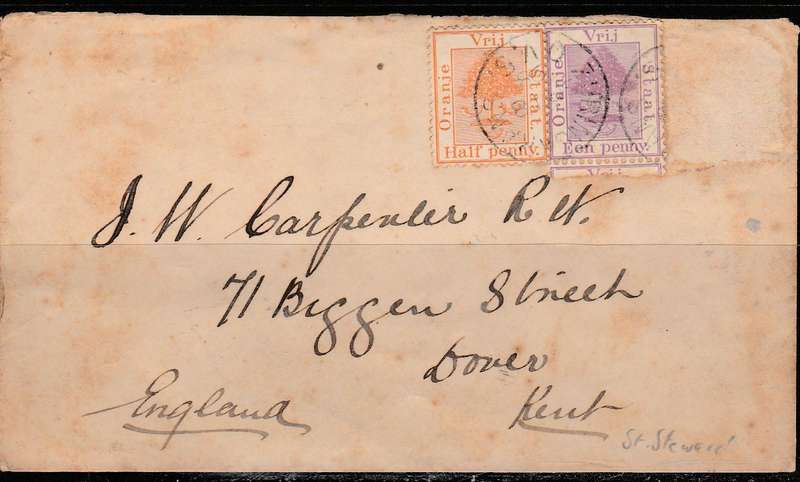 Vrij
Oranje
Staat.
Half penny.
Vrij
Oranje
Staat.
Een penny.
Vrij
J. W. Carpenter R. N.
71 Biggen Street
Dover
England
Kent
St. Steward